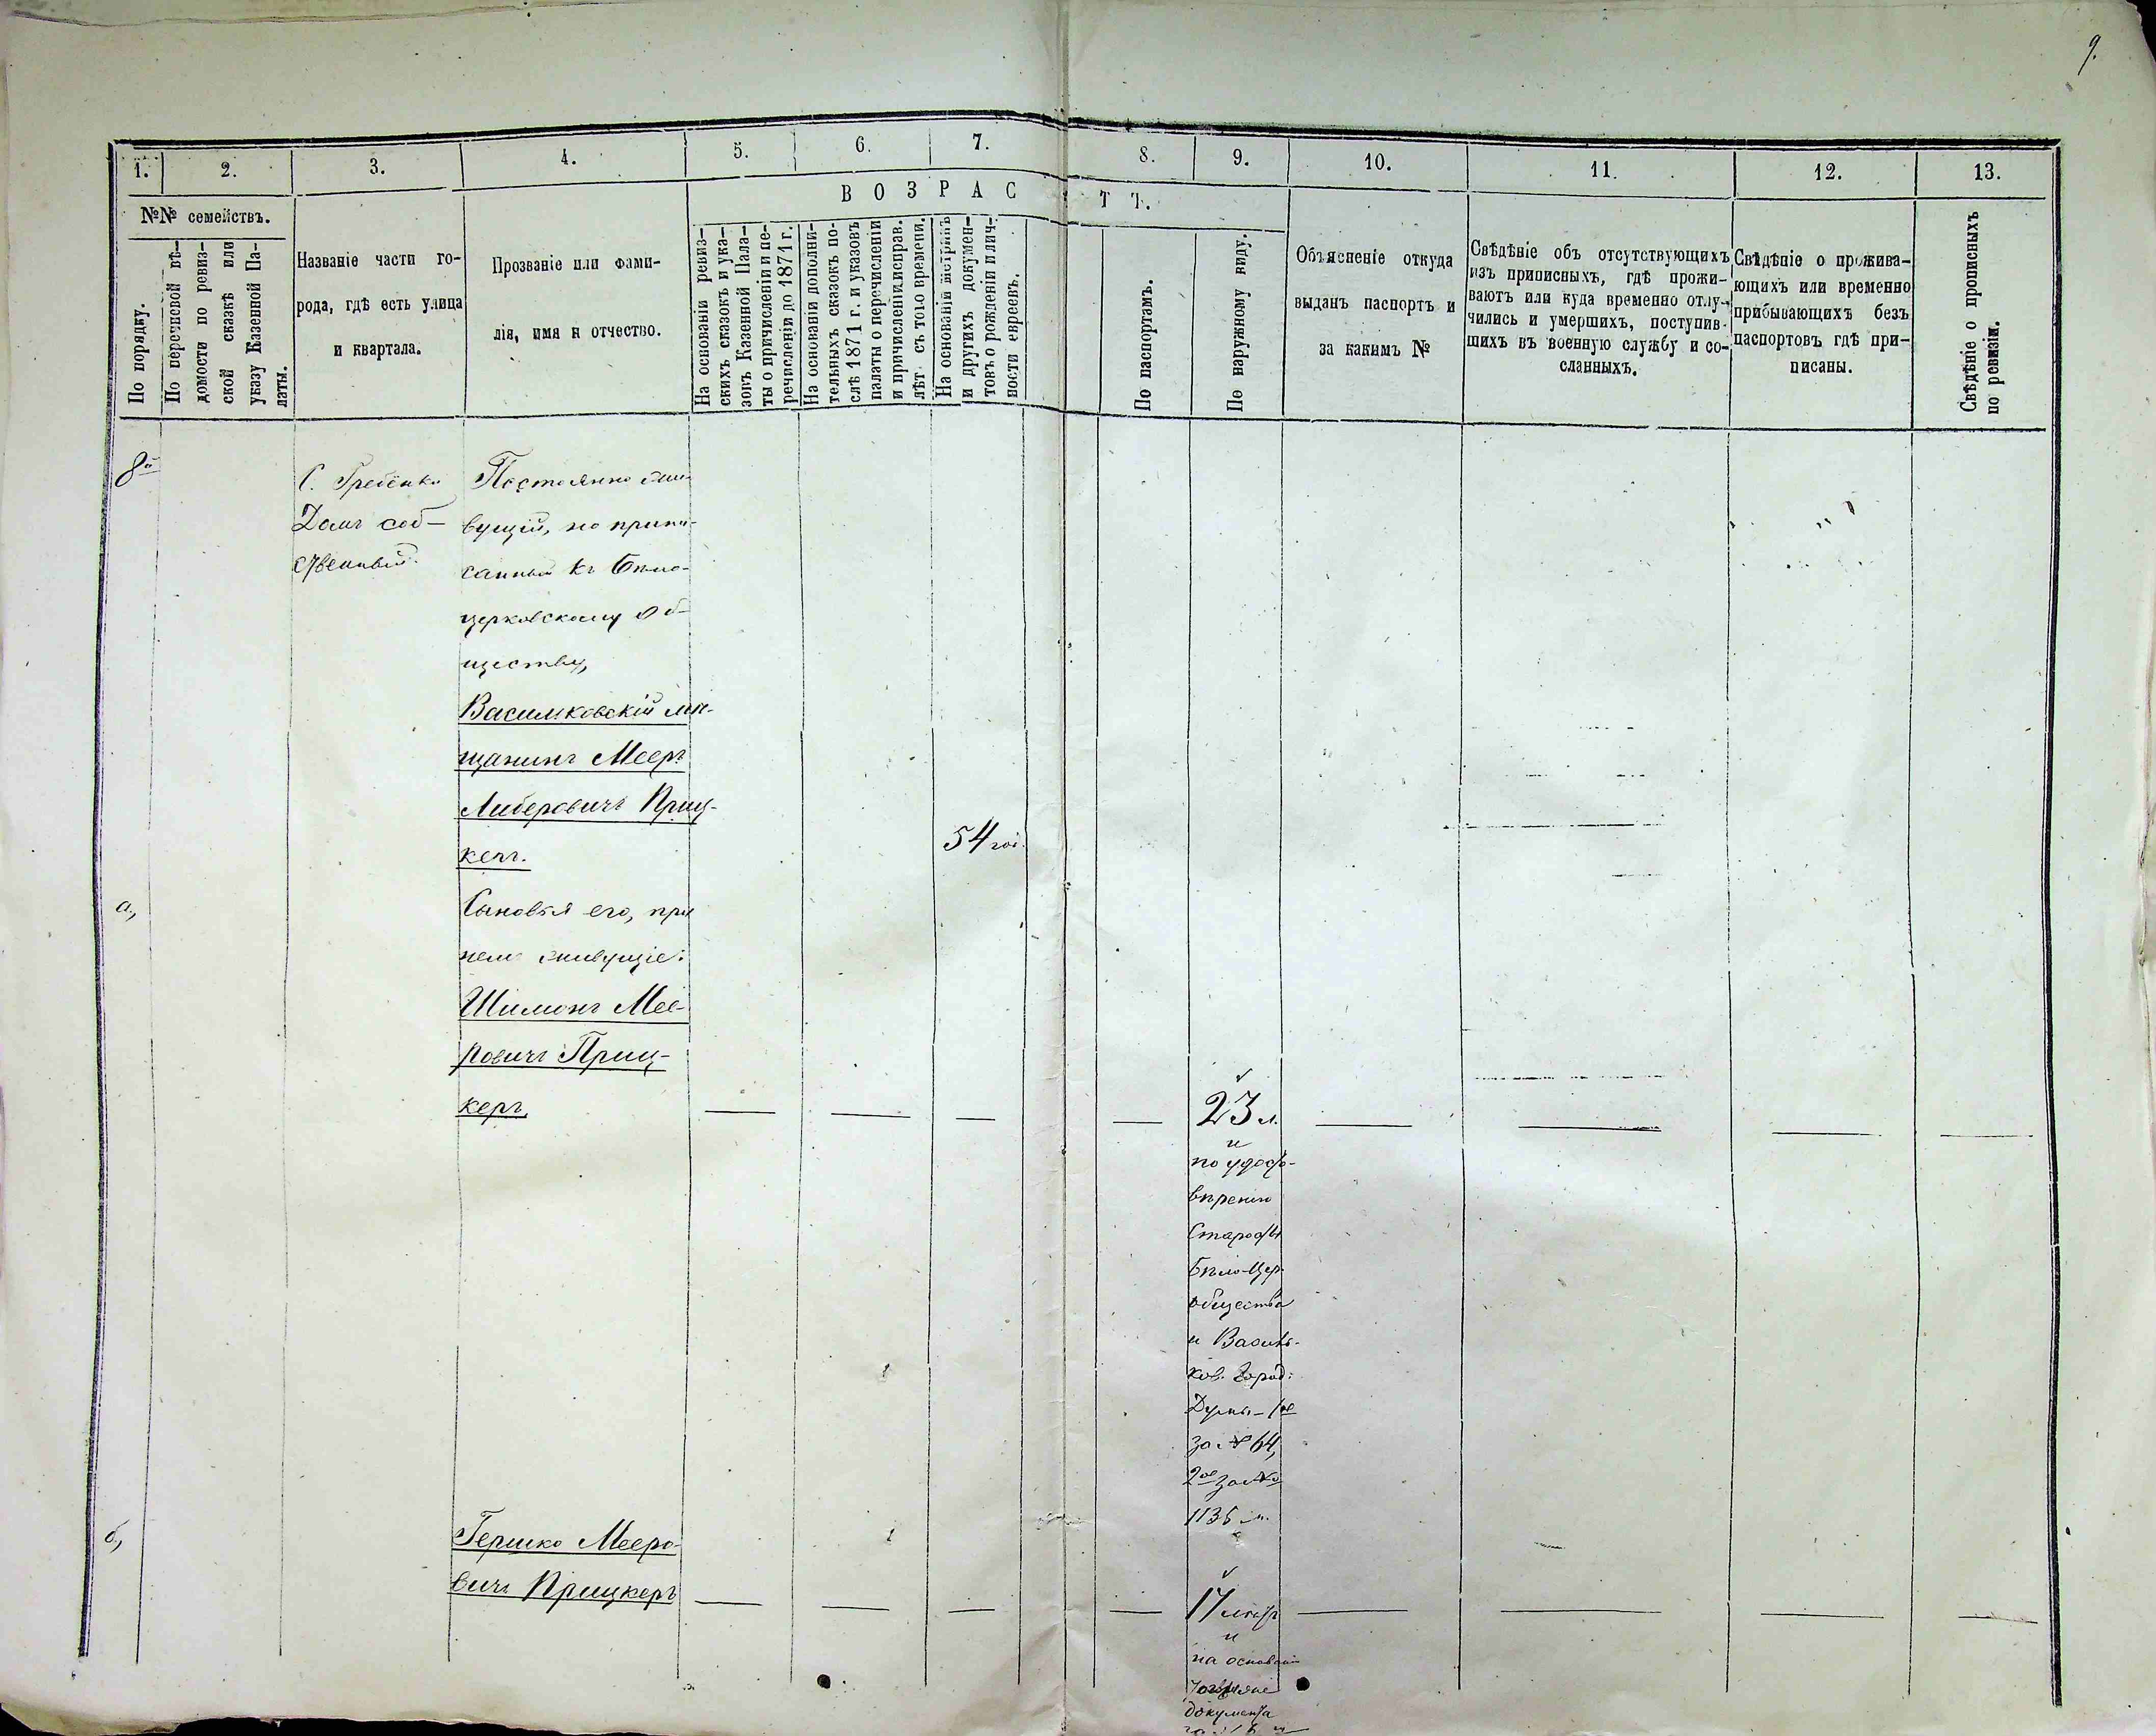 9.
1. 2. 3. 4. 5. 6. 7. 8. 9. 10. 11. 12. 13.
№№ семействъ.
По порядку.
По перечневой вѣ-
домости по ревиз-
ской сказкѣ или
указу Казенной Па-
латы.
Названіе части го-
рода, гдѣ есть улица
и квартала.
Прозваніе или фами-
лія, имя и отчество.
ВОЗРАСТТ.
На основаніи ревиз-
скихъ сказокъ и ука-
зовъ Казенной Пала-
ты о причисленіи и пе-
речисленіи до 1871 г.
На основаніи дополни-
тельныхъ сказокъ по-
слѣ 1871 г. и указовъ
палаты о перечисленіи
и причисленіи, исправ.
лѣт съ того времени.
На основаніи метрикъ
и другихъ докумен-
товъ о рожденіи и лич-
ности евреевъ.
По паспортамъ.
По наружному виду.
Объясненіе откуда
выданъ паспортъ и
за какимъ №
Свѣдѣніе объ отсутствующихъ
изъ приписныхъ, гдѣ прожи-
ваютъ или куда временно отлу-
чились и умершихъ, поступив-
шихъ въ военную службу и со-
сланныхъ.
Свѣдѣніе о прожива-
ющихъ или временно
прибывающихъ безъ
паспортовъ гдѣ при-
писаны.
Свѣдѣніе о прописныхъ
по ревизіи.
8й
С. Гребенки
Домъ соб-
ственный.
Постоянно жи-
вущій, но припи-
санный къ Бѣло-
церковскому об-
ществу,
Васильковскій мѣ-
щанинъ Мееръ
Либеровичъ Приц-
керъ.
54 год.
а,
Сыновья его, при
немъ живущіе:
Шимонъ Мее-
ровичъ Приц-
керъ,
23 л.
и
по удосто-
вѣренію
Старосты
Бѣло-Цер.
общества
и Василь-
ков. Город:
Думы - 1ое
за № 64,
2ое за №
1135
б,
Гершко Мееро-
вичъ Прицкеръ
17 лѣтъ
и
на основаніи
документа